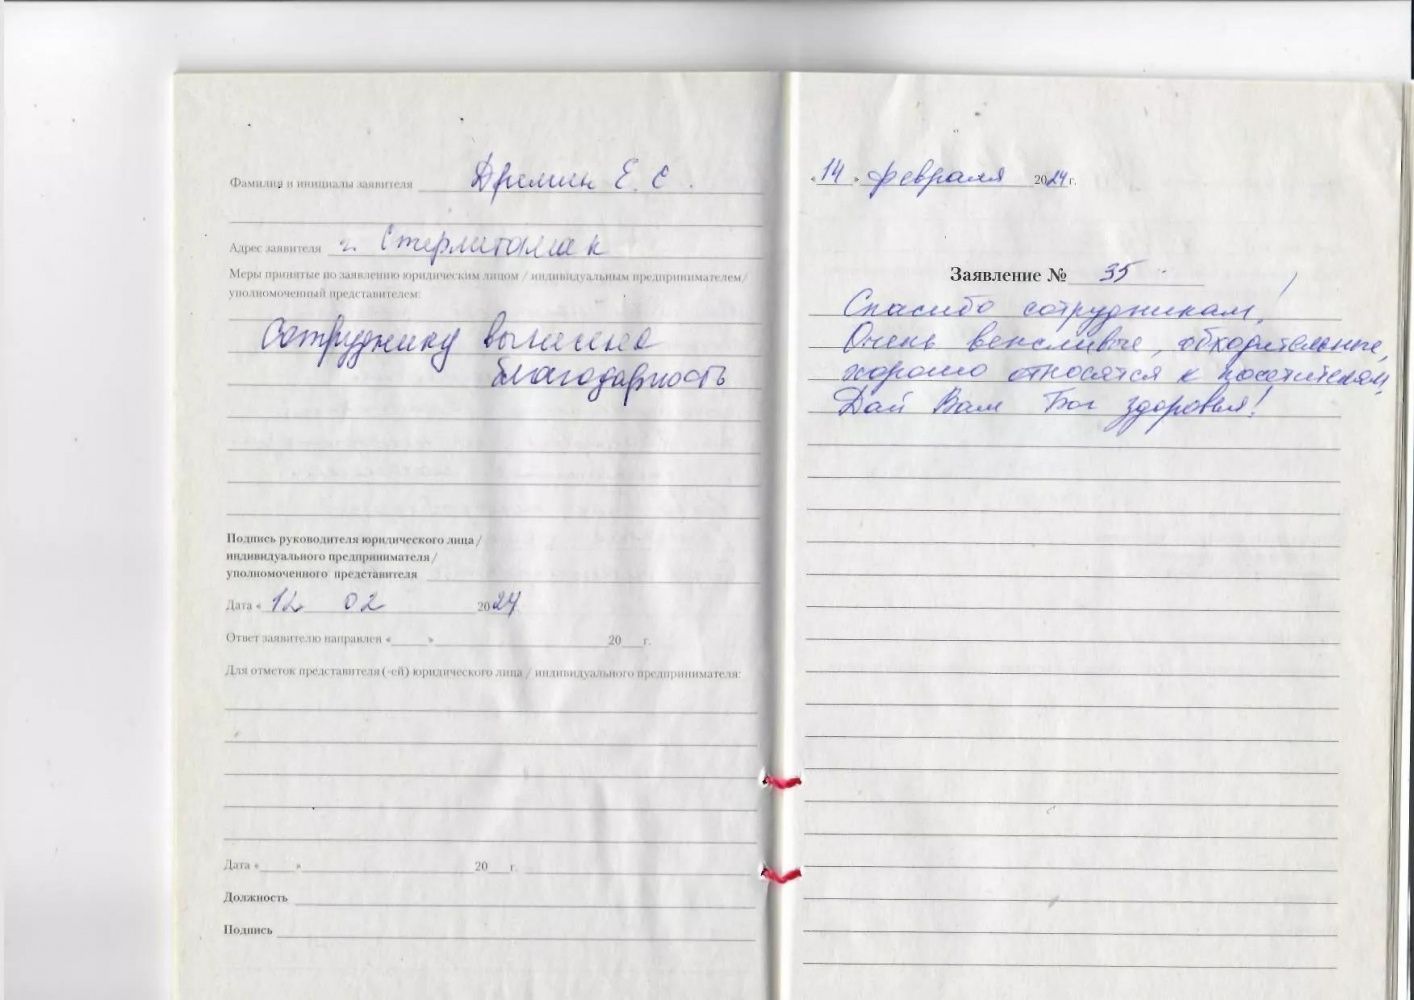 Фамилия и инициалы заявителя Дремин Е. С.
Адрес заявителя г. Стерлитамак
Меры принятые по заявлению юридическим лицом / индивидуальным предпринимателем/
уполномоченный представителем:
Сотруднику вынесена
благодарность
Подпись руководителя юридического лица /
индивидуального предпринимателя /
уполномоченного представителя
Дата « 12 02 2024
Ответ заявителю направлен « » 20 г.
Для отметок представителя (-ей) юридического лица / индивидуального предпринимателя:
Дата « » 20 г.
Должность
Подпись
«14» февраля 2024 г.
Заявление № 35
Спасибо сотрудникам!
Очень вежливые, обходительные,
хорошо относятся к посетителям,
Дай Вам Бог здоровья!